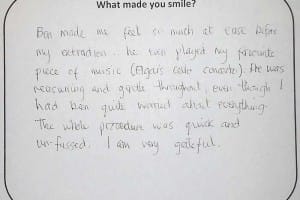 What made you smile?
Ben made me feel so much at ease before
my extraction.. he even played my favourite
piece of music (Elgars cello concerto). He was
reassuring and gentle throughout, even though I
had been quite worried about everything.
The whole procedure was quick and
un-fussed. I am very grateful.